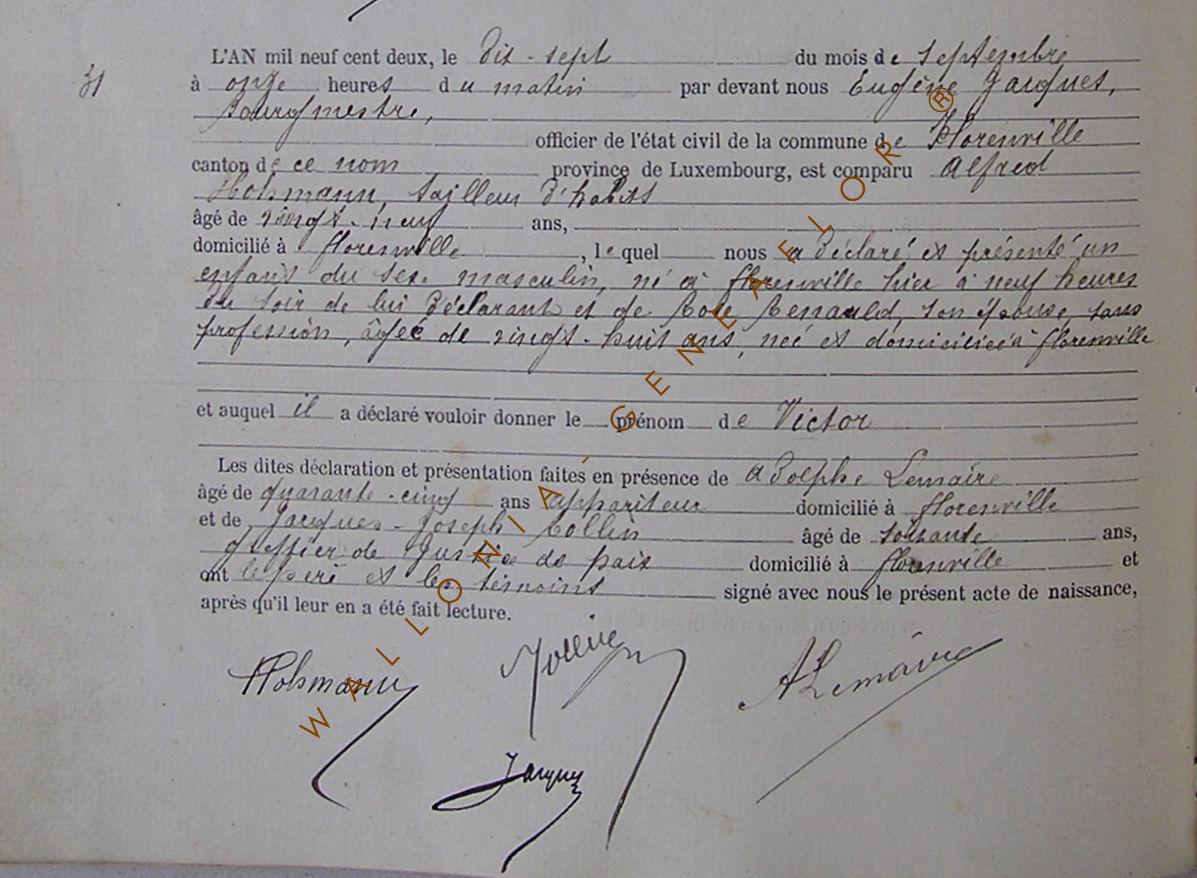 L'AN mil neuf cent deux, le Dix-sept du mois de Septembre
31
à onze heures du matin par devant nous Eugène Jacques,
bourgmestre,
officier de l'état civil de la commune de Florenville
canton de ce nom province de Luxembourg, est comparu Alfred
Hohmann, tailleur d'habits
âgé de vingt-neuf ans,
domicilié à florenville, lequel nous a déclaré et présenté un
enfant du sexe masculin, né à florenville hier à neuf heures
du soir de lui Déclarant et de Rose Renauld, son épouse, sans
profession, âgée de vingt-huit ans, née et domiciliée à florenville
et auquel il a déclaré vouloir donner le prénom de Victor
Les dites déclaration et présentation faites en présence de Adolphe Lemaire
âgé de quarante-cinq ans appariteur domicilié à florenville
et de Jacques-Joseph Collin âgé de soixante ans,
greffier de Justice de paix domicilié à florenville et
ont le père et les témoins signé avec nous le présent acte de naissance,
après qu'il leur en a été fait lecture.
Hohmann JCollin ALemaire
Jacques
WALLONIA-GENEALOR®